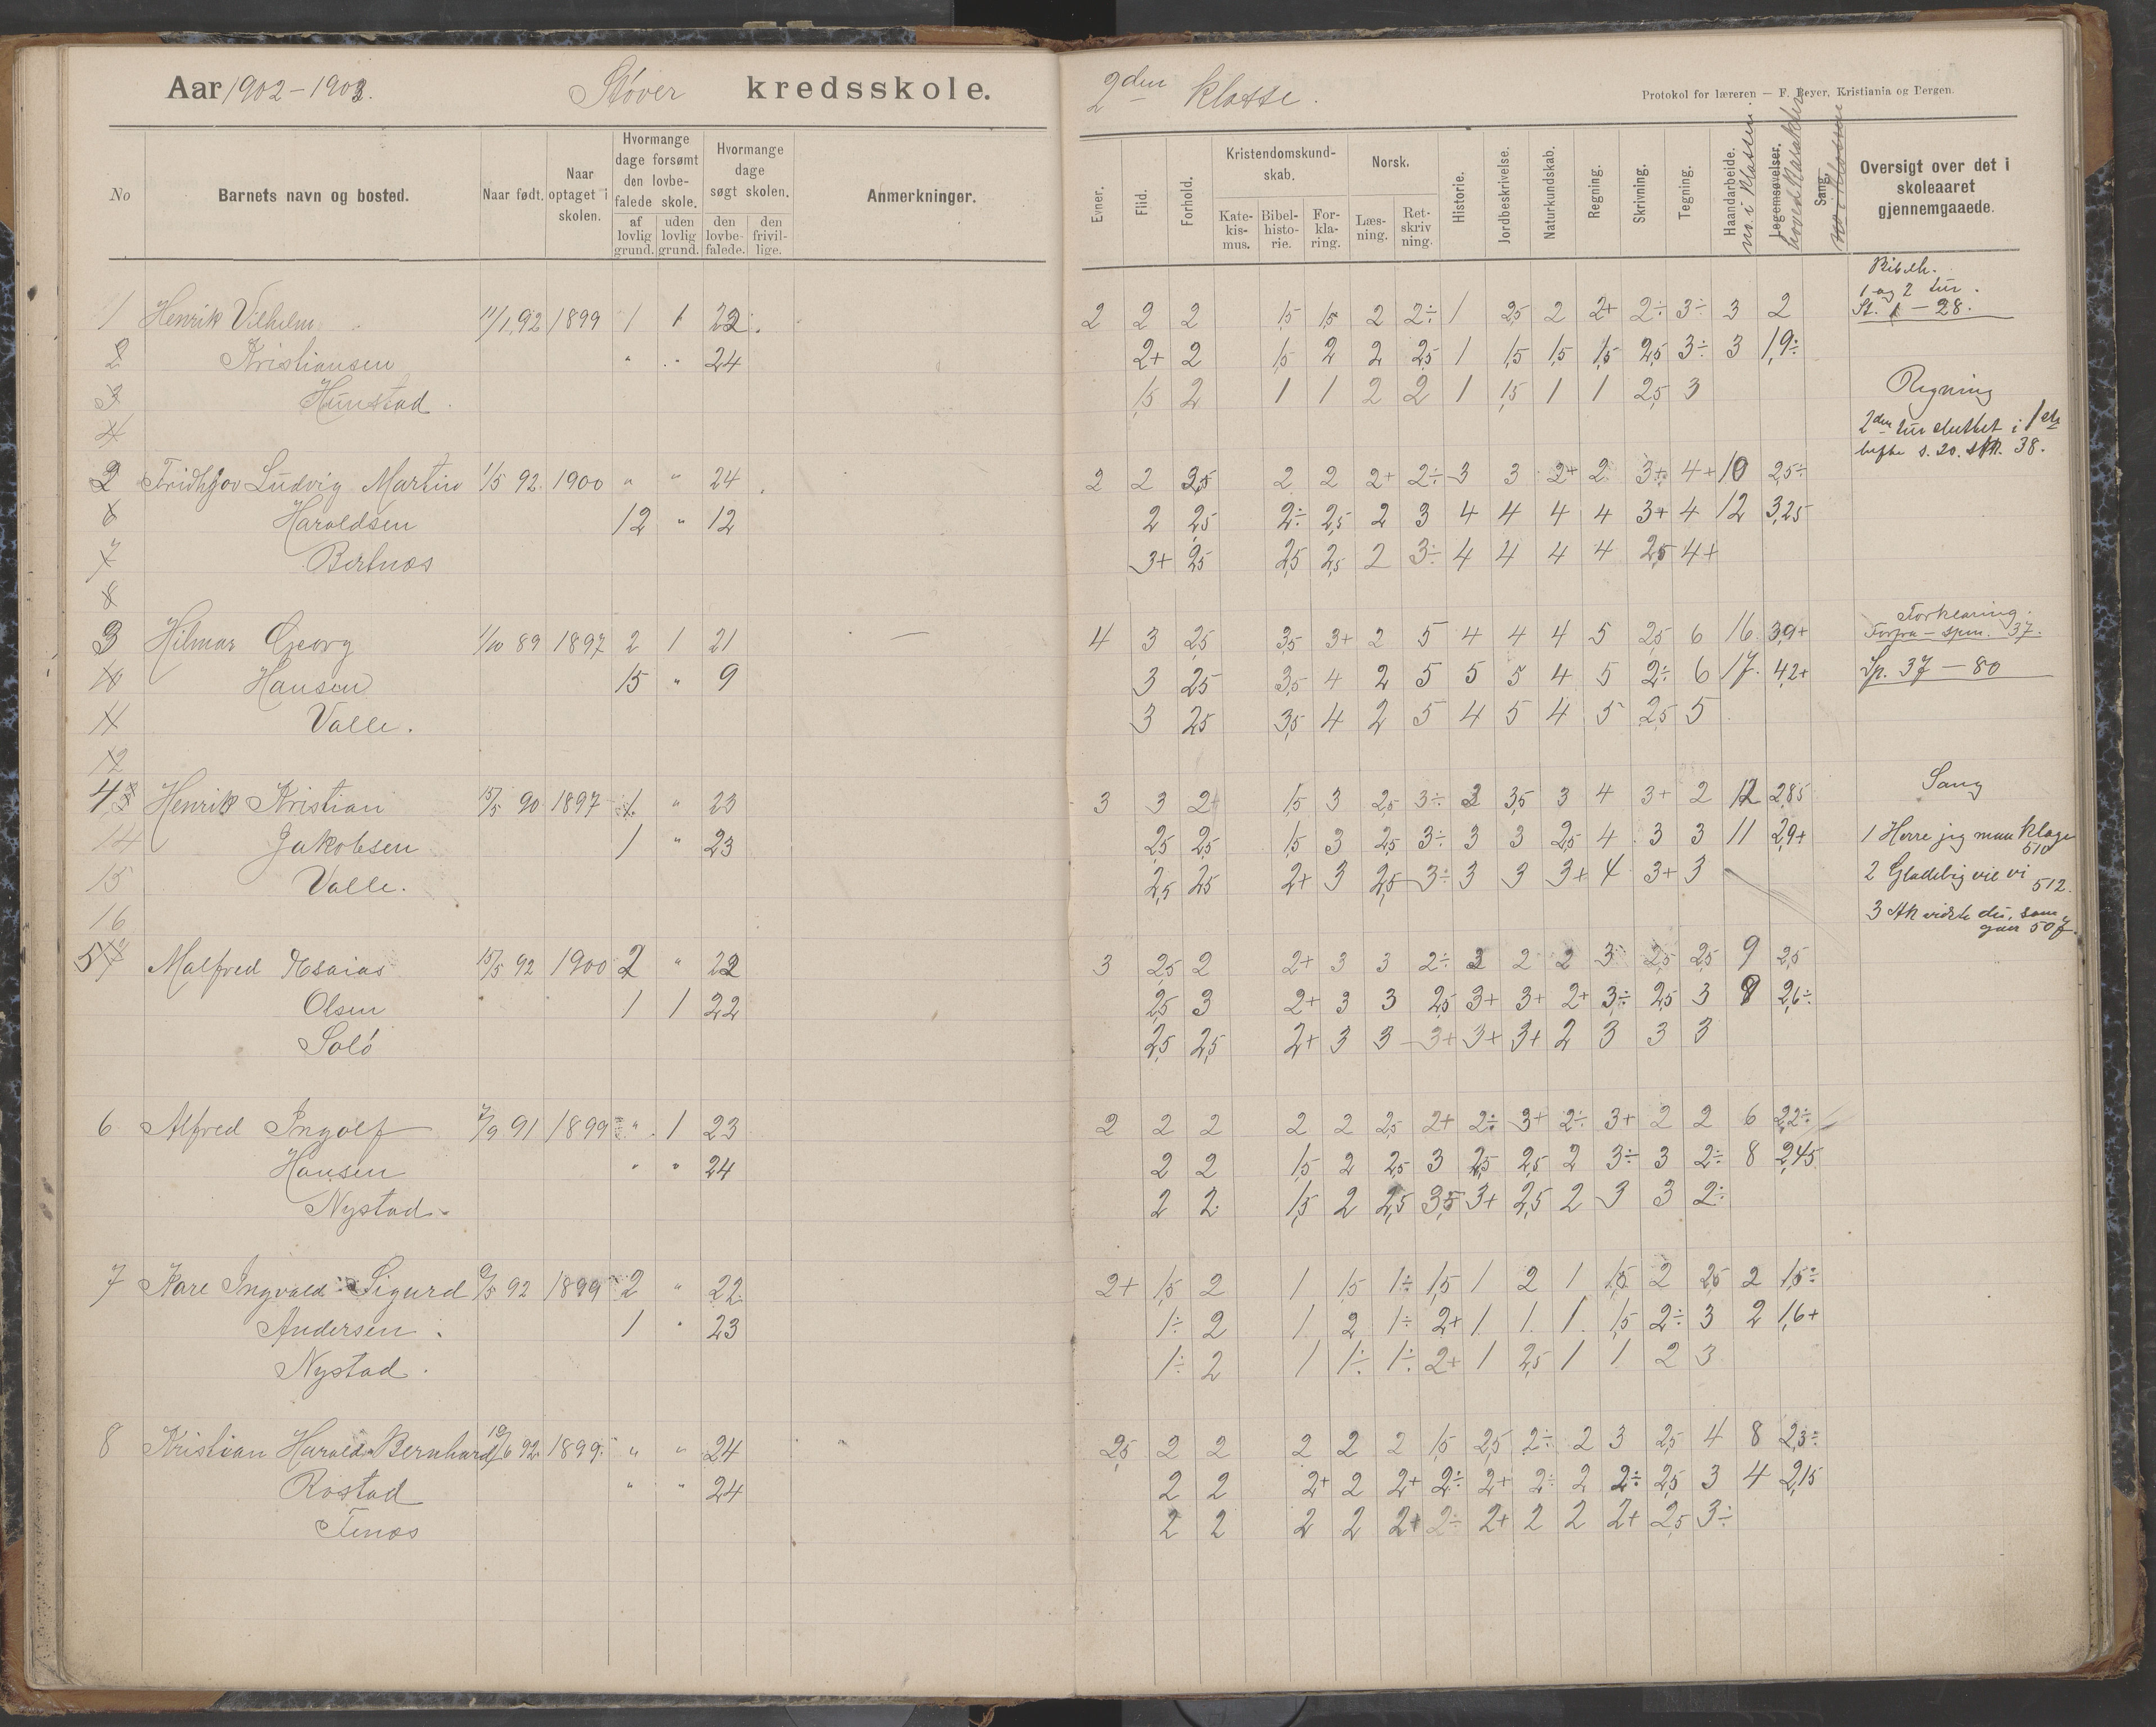 Aar 1902-1903. Støver kredsskole.
2den klasse.
Protokol for læreren — F. Beyer, Kristiania og Bergen.
No
Barnets navn og bosted.
Naar født.
Naar optaget i skolen.
Hvormange dage forsømt den lovbefalede skole.
af lovlig grund.
uden lovlig grund.
Hvormange dage søgt skolen.
den lovbefalede.
den frivillige.
Anmerkninger.
Evner.
Flid.
Forhold.
Kristendomskundskab.
Katekismus.
Bibelhistorie.
Forklaring.
Norsk.
Læsning.
Retskrivning.
Historie.
Jordbeskrivelse.
Naturkundskab.
Regning.
Skrivning.
Tegning.
Haandarbeide.
no. i klassen
Legemsøvelser.
hovedkarakter
Sang.
no i klassen
Oversigt over det i skoleaaret gjennemgaaede.
1 Henrik Vilhelm 11/1,92 1899 1 1 22. 2 2 2 1,5 1,5 2 2÷ 1 2,5 2 2+ 2÷ 3÷ 3 2
2 Kristiansen " " 24 2+ 2 1,5 2 2 2,5 1 1,5 1,5 1,5 2,5 3÷ 3 1,9÷
3 Hunstad. 1,5 2 1 1 2 2 1 1,5 1 1 2,5 3
4
2 Fridhjov Ludvig Martin 1/5 92 1900 " " 24 2 2 3,5 2 2 2+ 2÷ 3 3 2+ 2 3+ 4+ 10 2,5÷
6 Haroldsen 12 " 12 2 2,5 2÷ 2,5 2 3 4 4 4 4 3+ 4 12 3,25
7 Bertnæs 3+ 2,5 2,5 2,5 2 3÷ 4 4 4 4 2,5 4+
8
3 Hilmar Georg 1/10 89 1897 2 1 21 — 4 3 2,5 3,5 3+ 2 5 4 4 4 5 2,5 6 16 3,9+
10 Hansen 15 " 9 3 2,5 3,5 4 2 5 5 5 4 5 2÷ 6 17. 4,2+
11 Valle. 3 2,5 3,5 4 2 5 4 5 4 5 2,5 5
12
4 Henrik Kristian 15/5 90 1897 1. " 23 3 3 2+ 1,5 3 2,5 3÷ 3 3,5 3 4 3+ 2 12 2,85
14 Jakobsen 1 " 23 2,5 2,5 1,5 3 2,5 3÷ 3 3 2,5 4 3 3 11 2,9+
15 Valle. 2,5 2,5 2+ 3 2,5 3÷ 3 3 3+ 4 3+ 3
16
5 Malfred Esaias 15/5 92 1900 2 " 22 3 2,5 2 2+ 3 3 2÷ 3 2 2 3 2,5 2,5 9 2,5
Olsen 1 1 22 2,5 3 2+ 3 3 2,5 3+ 3+ 2+ 3÷ 2,5 3 9 2,6÷
Solø 2,5 2,5 2+ 3 3 3+ 3+ 3+ 2 3 3 3
6 Alfred Ingolf 7/9 91 1899 " 1 23 2 2 2 2 2 2,5 2+ 2÷ 3+ 2÷ 3+ 2 2 6 2,2÷
Hansen " " 24 2 2 1,5 2 2,5 3 2,5 2,5 2 3÷ 3 2÷ 8 2,45
Nystad. 2 2 1,5 2 2,5 3,5 3+ 2,5 2 3 3 2÷
7 Kare Ingvald Sigurd 9/5 92 1899 2 " 22 2+ 1,5 2 1 1,5 1÷ 1,5 1 2 1 1,5 2 2,5 2 1,5÷
Andersen. 1 " 23 1÷ 2 1 2 1÷ 2+ 1 1 1 1,5 2÷ 3 2 1,6+
Nystad. 1÷ 2 1 1÷ 1÷ 2+ 1 2,5 1 1 2 3
8 Kristian Harald Bernhard 19/6 92 1899 " " 24 2,5 2 2 2 2 2 1,5 2,5 2÷ 2 3 2,5 4 8 2,3÷
Røstad " " 24 2 2 2+ 2 2+ 2÷ 2+ 2÷ 2 2÷ 2,5 3 4 2,15
Tenæs 2 2 2 2 2+ 2÷ 2+ 2 2 2+ 2,5 3÷
Bibelh.
1 og 2 tur.
St. 1 - 28.
Regning
2den tur sluttet i 1ste
hefte s. 20. stk. 38.
Forklaring.
Forfra - spm. 37.
Sp. 37 - 80
Sang
1 Herre jeg maa klage
510
2 Gladelig vil vi
512.
3 Ak vidste du, som
gaar 507.